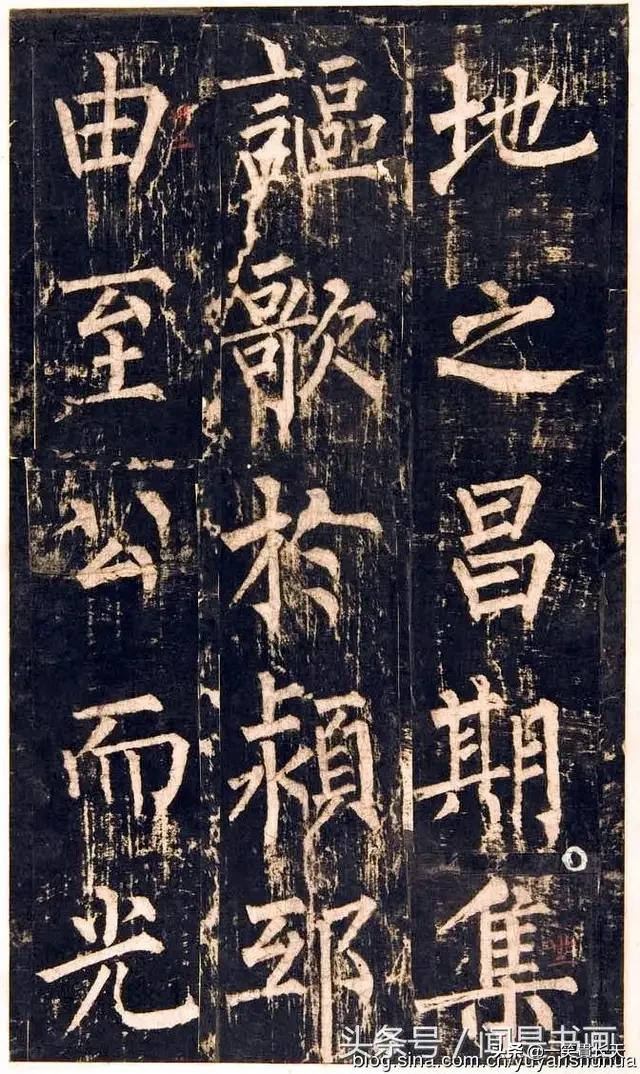 地之昌期集
謳歌於潁邸
由至公而光
头条号/闻是书画
blog.sina.com.cn/yuyanshuhua